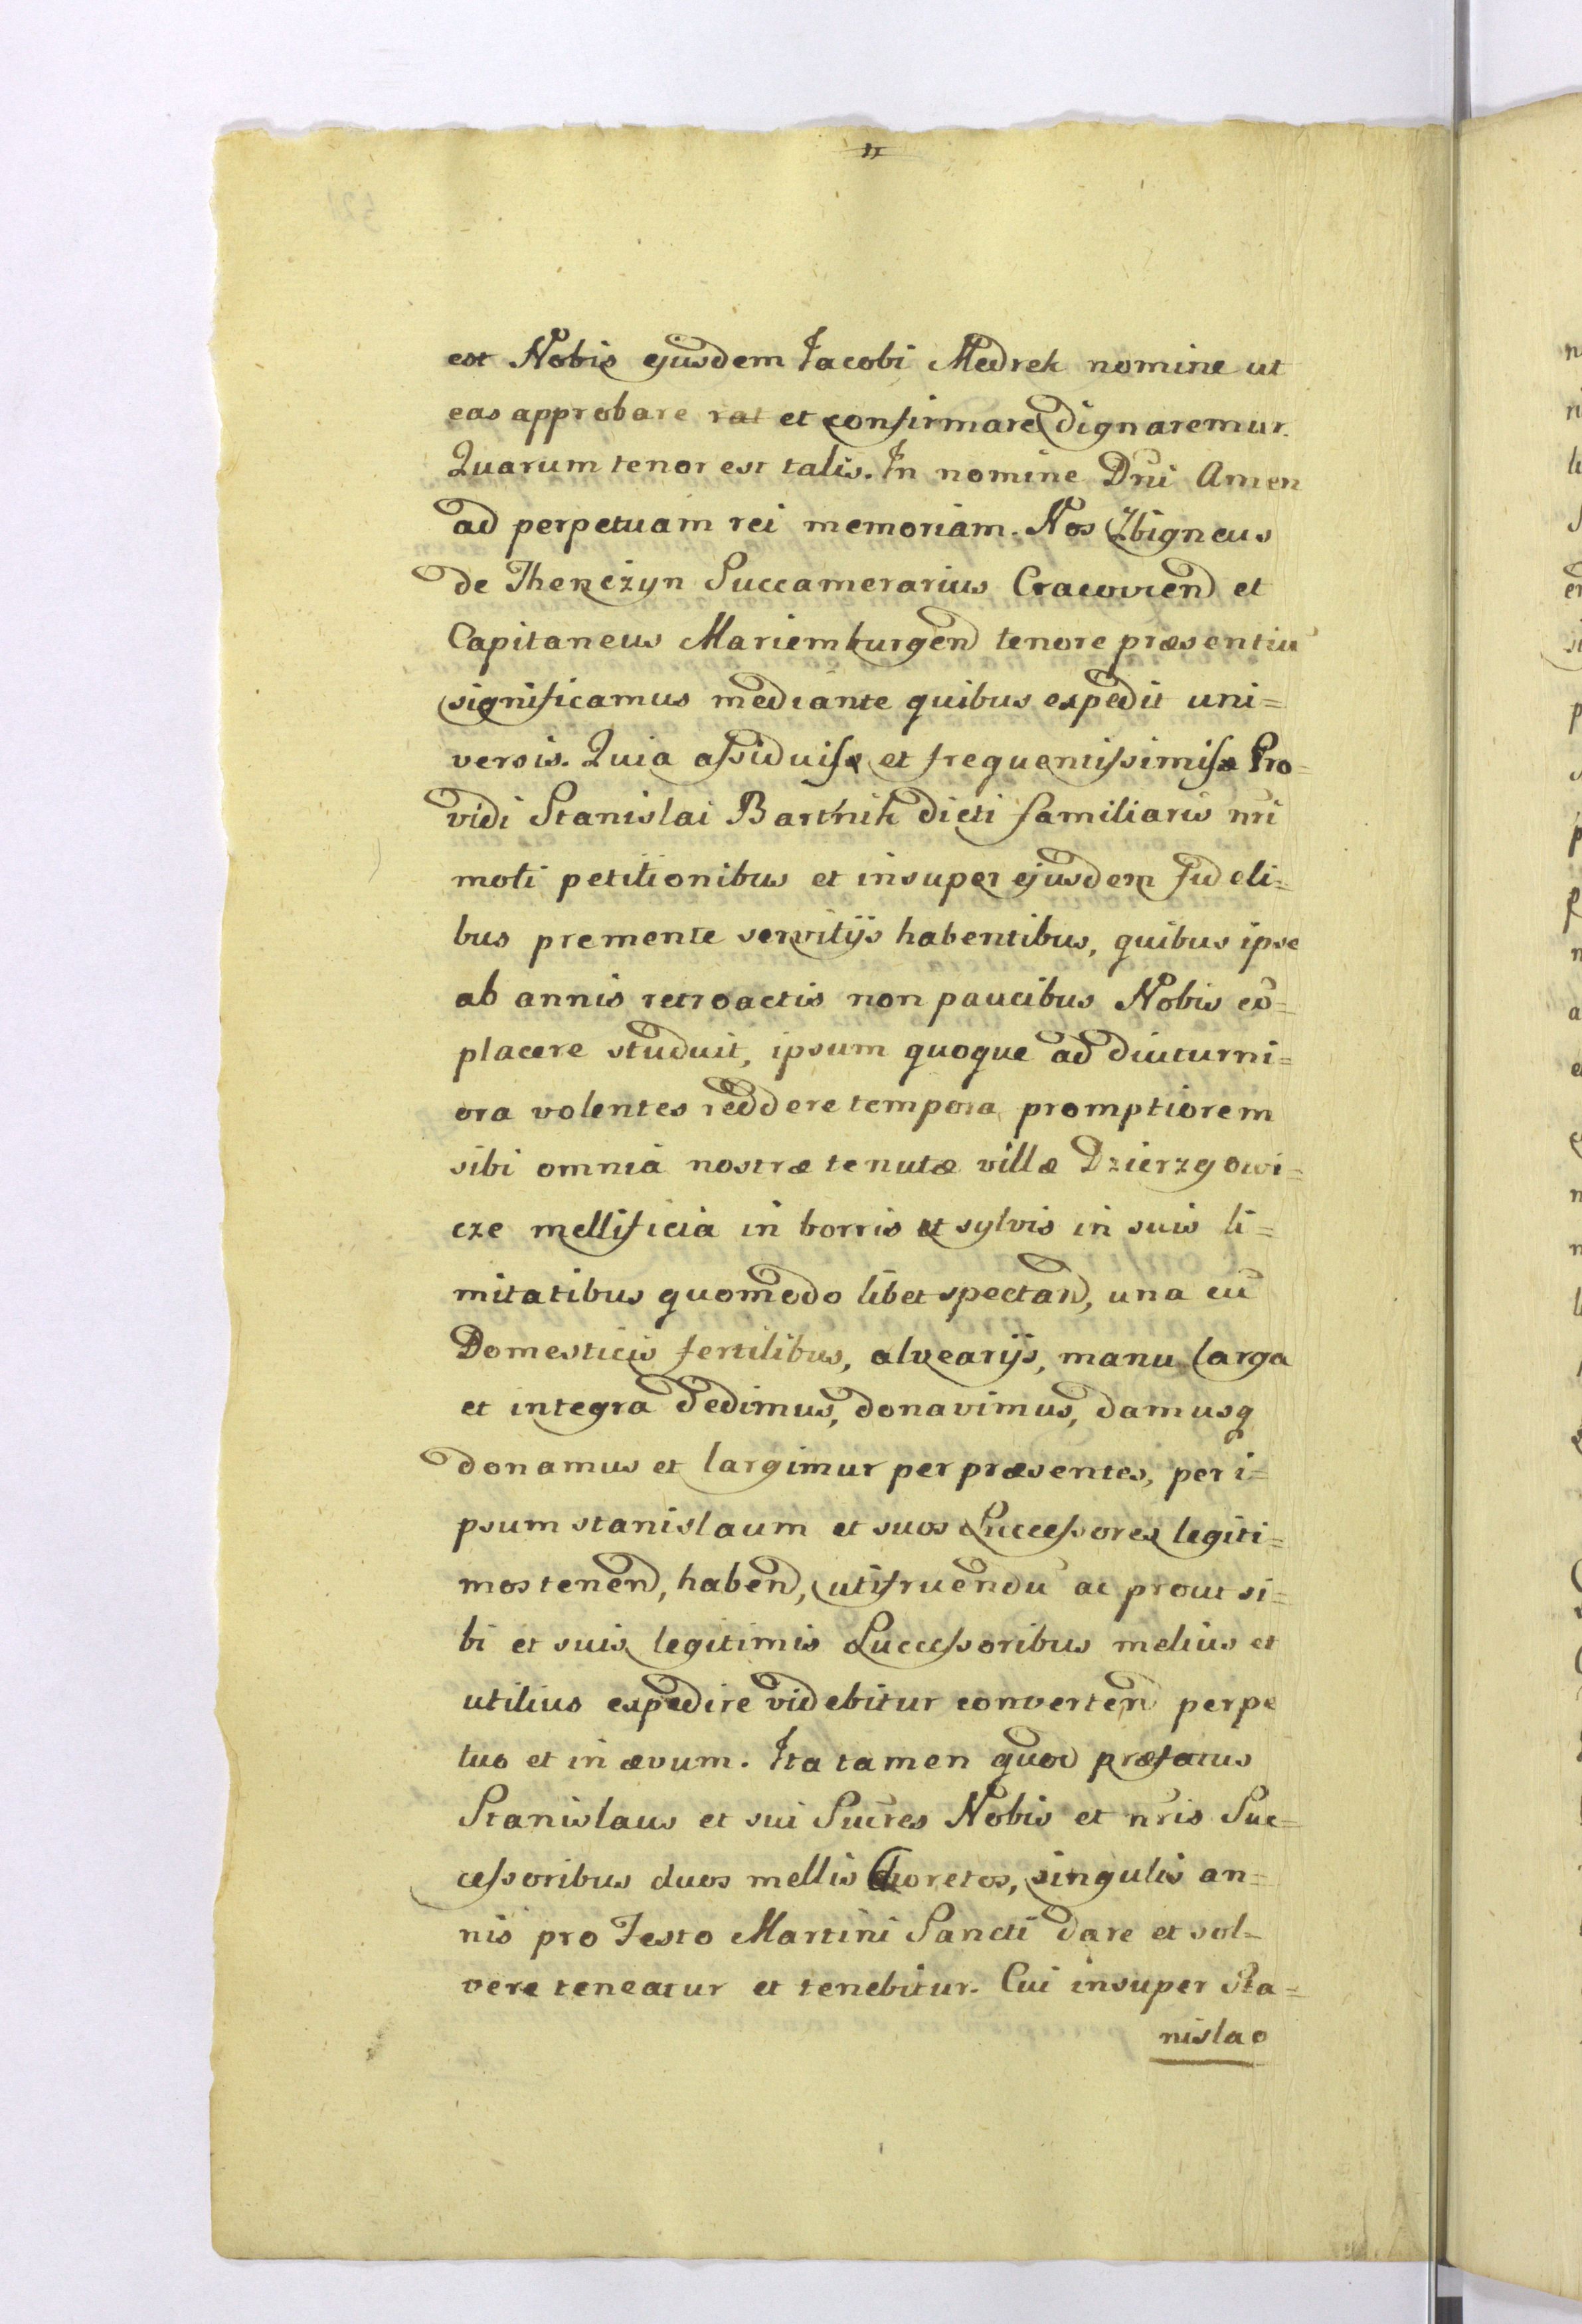 est Nobis ejusdem Jacobi Medrek nomine ut
eas approbare rat et confirmare dignaremur.
Quarum tenor est talis. In nomine Dni Amen
ad perpetuam rei memoriam. Nos Zbigneus
de Thenczyn Succamerarius Cracovien et
Capitaneus Mariemburgen tenore præsentiu
significamus mediante quibus expedit uni=
versis. Quia assiduisq et frequentissimisq Pro=
vidi Stanislai Barthik dicti familiaris nri
moti petitionibus et insuper ejusdem fideli=
bus premente servitijs habentibus, quibus ipse
ab annis retroactis non paucibus Nobis co=
placere studuit, ipsum quoque ad diuturni=
ora volentes reddere tempora promptiorem
sibi omnia nostræ tenutæ villæ Dzierzgowi=
cze mellificia in borris et sylvis in suis li=
mitatibus quomodo libet spectan, una cu
Domesticis fertilibus, alvearijs, manu larga
et integra dedimus, donavimus, damusq
donamus et largimur per præsentes, per i=
psum stanislaum et suos Successores legiti=
mos tenen, haben, utifruendu ac prout si=
bi et suis legitimis Successoribus melius et
utilius expedire videbitur converten perpe
tuo et in ævum. Ita tamen quod præfatus
Stanislaus et sui Sucres Nobis et nris Suc=
cessoribus duos mellis choretos, singulis an=
nis pro Festo Martini Sancti dare et sol=
vere teneatur et tenebitur. Cui insuper Sta=
nislao